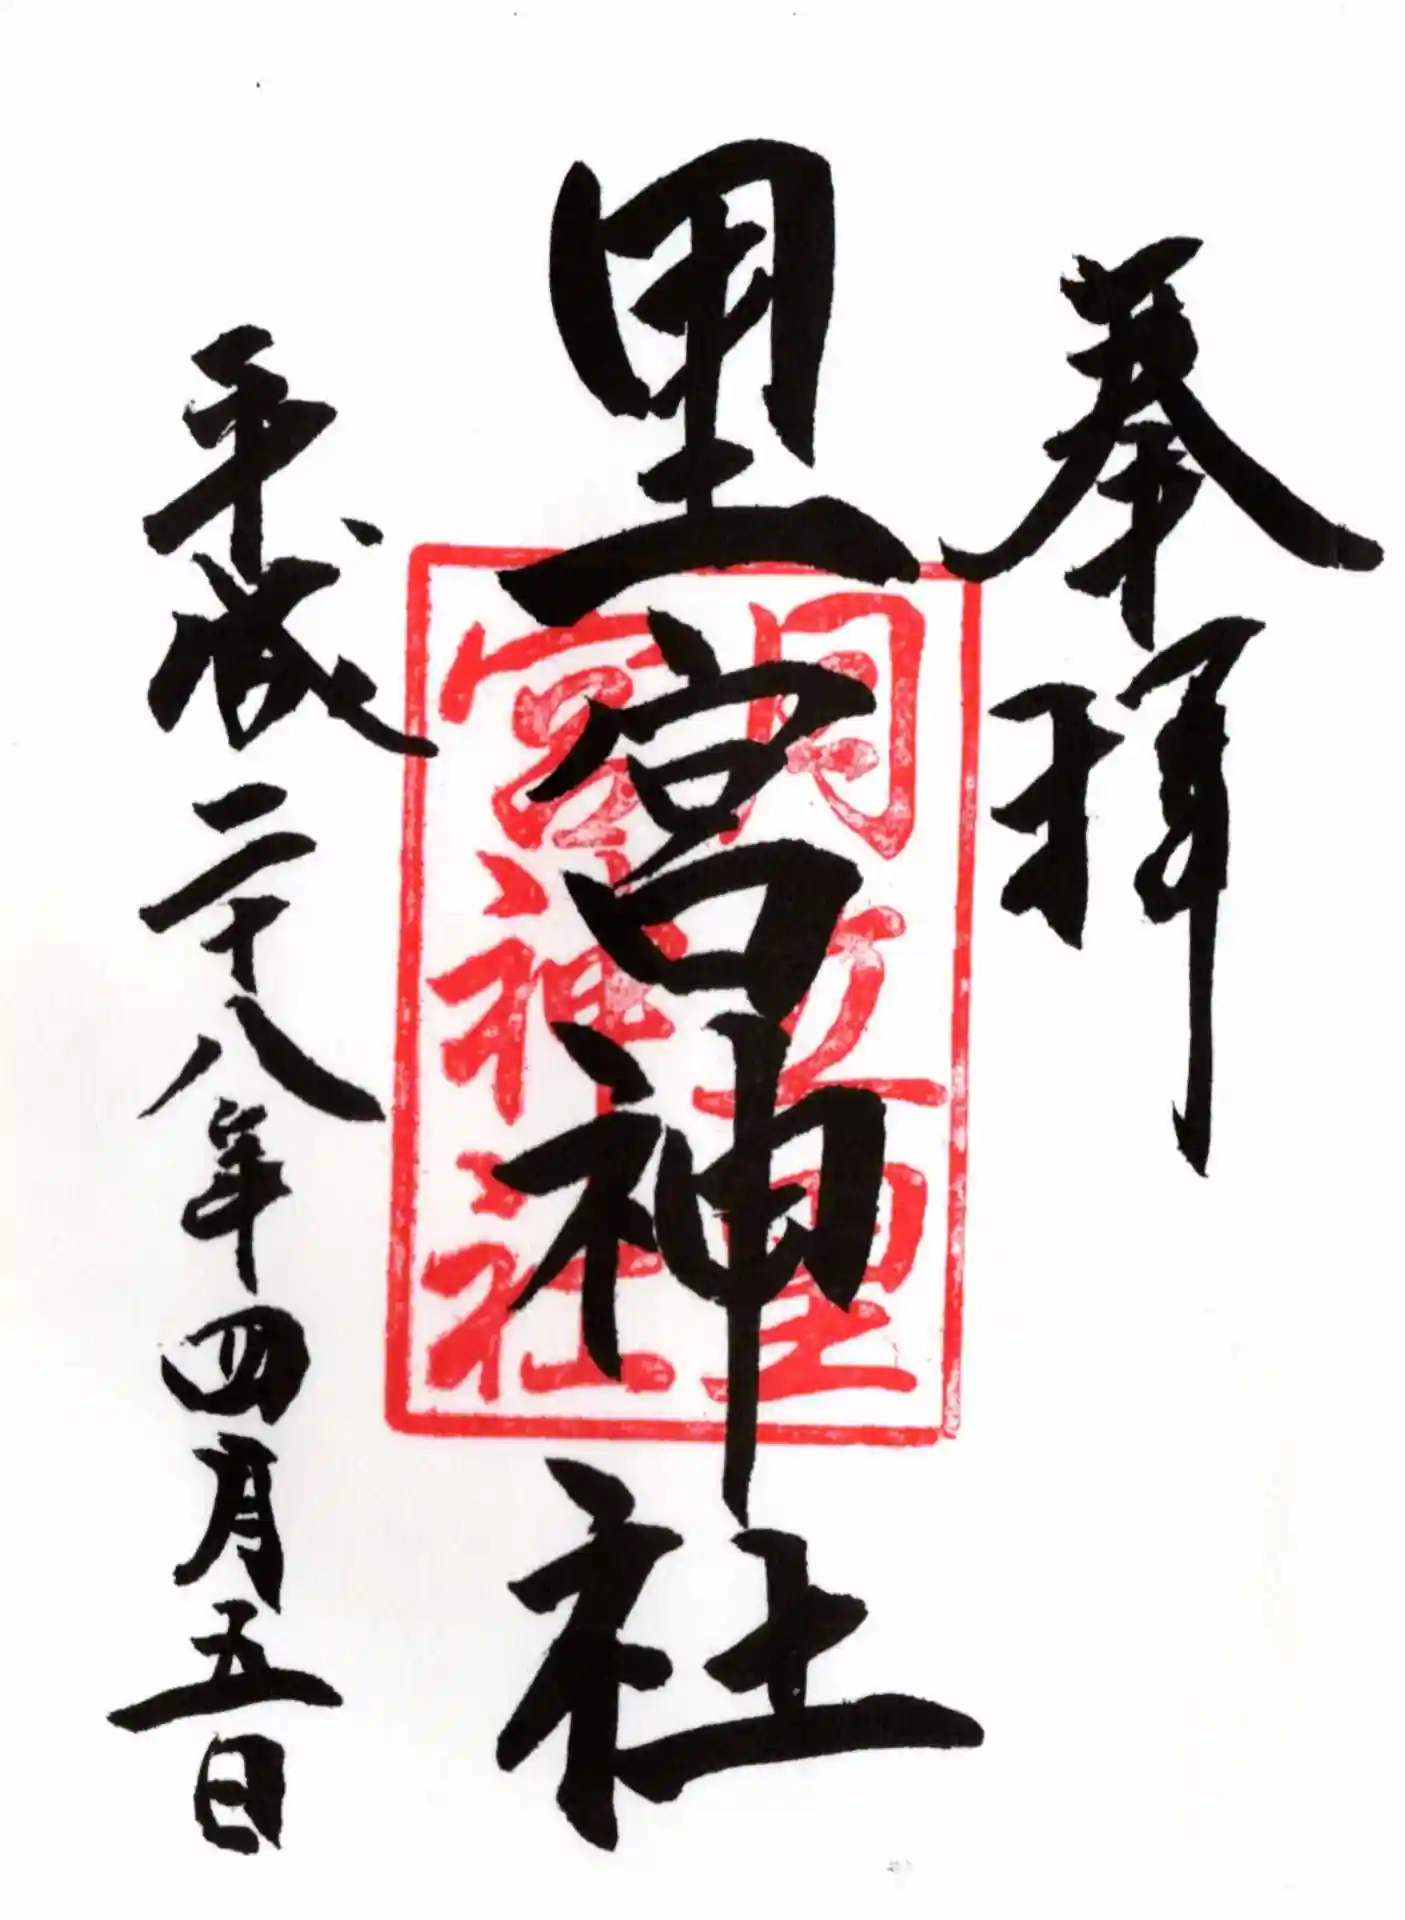 奉拝
里宮神社
月立里
宮神社
平成二十八年四月五日